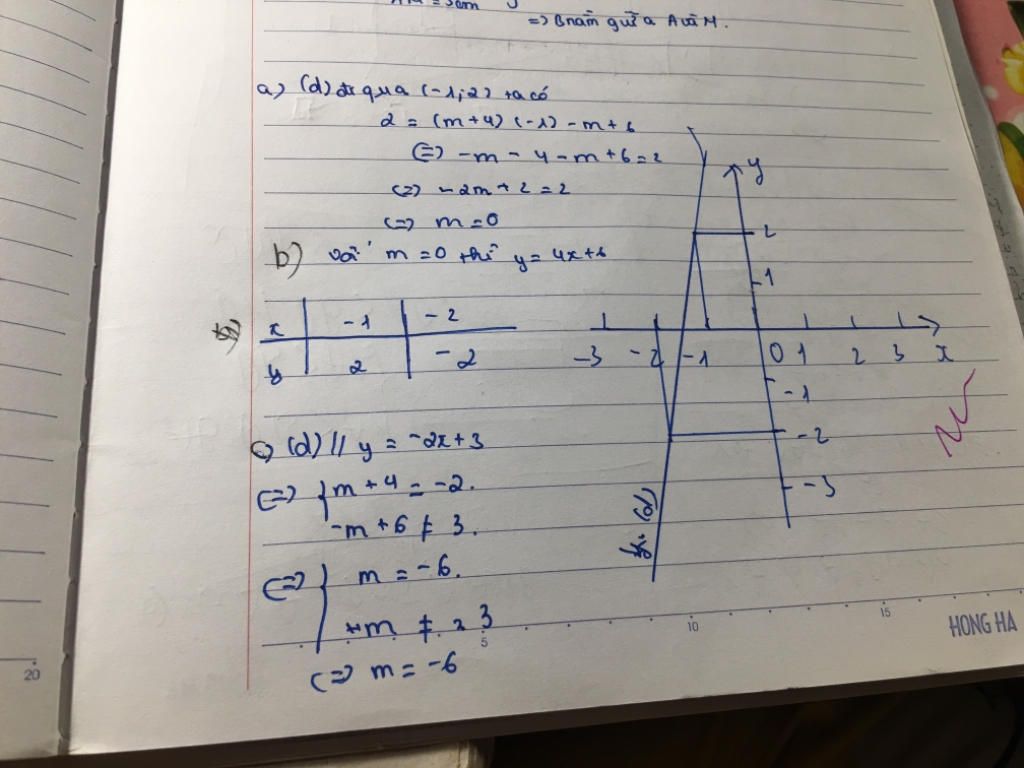 = 3cm
=> B nằm giữa A và M.
a) (d) đi qua (-1;2) ta có
2 = (m+4) (-1) - m + 6
(=) -m - 4 - m + 6 = 2
(=) -2m + 2 = 2
(=) m = 0
b) với m = 0 thì y = 4x+6
x -1 -2
y 2 -2
c) (d) // y = -2x+3
(=) { m + 4 = -2.
-m + 6 ≠ 3.
(=) { m = -6.
m ≠ 3
(=) m = -6
y
2
1
-3 -2 -1 0 1 2 3 x
-1
-2
-3
(d)
5 10 15
HONG HA
20